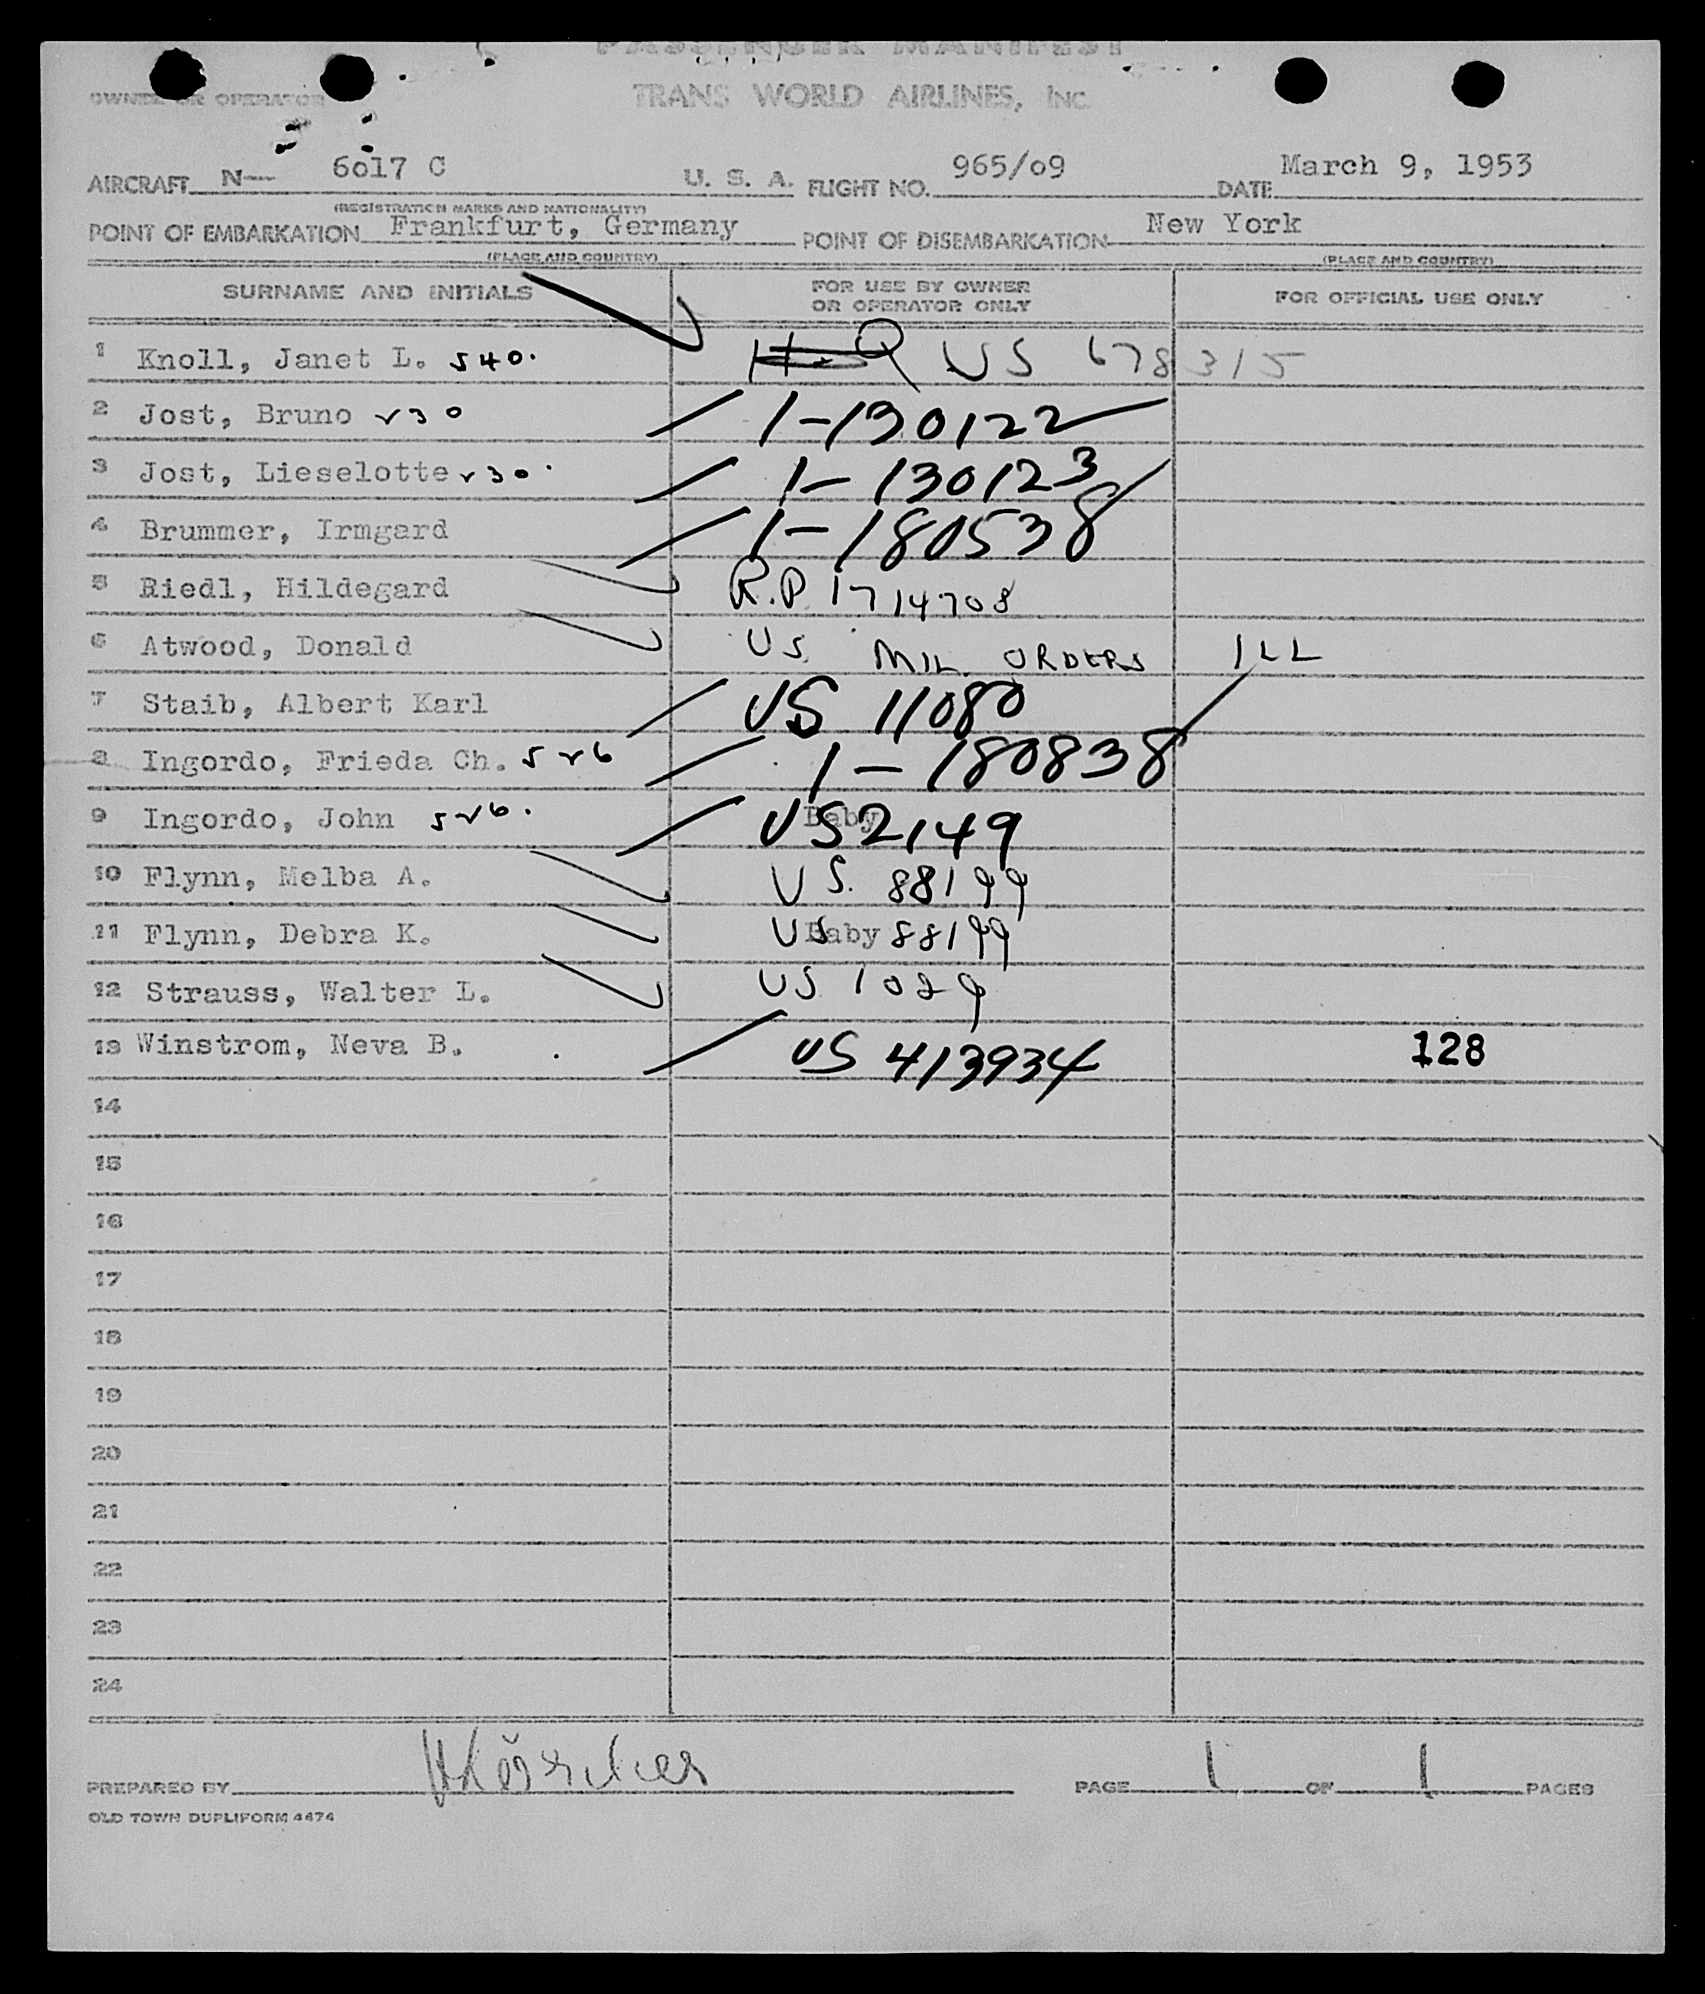 PASSENGER MANIFEST
OWNER OR OPERATOR TRANS WORLD AIRLINES, INC
AIRCRAFT N— 6o17 C U. S. A. FLIGHT NO. 965/o9 DATE March 9, 1953
(REGISTRATION MARKS AND NATIONALITY)
POINT OF EMBARKATION Frankfurt, Germany POINT OF DISEMBARKATION New York
(PLACE AND COUNTRY) (PLACE AND COUNTRY)
SURNAME AND INITIALS FOR USE BY OWNER OR OPERATOR ONLY FOR OFFICIAL USE ONLY
1 Knoll, Janet L. 540. US 678315
2 Jost, Bruno v30 1-130122
3 Jost, Lieselotte v30. 1-130123
4 Brummer, Irmgard 1-180538
5 Riedl, Hildegard R.P 1714708
6 Atwood, Donald US MIL ORDERS ILL
7 Staib, Albert Karl US 11080
8 Ingordo, Frieda Ch. 5v6 1-180838
9 Ingordo, John 5v6. Baby US 2149
10 Flynn, Melba A. US. 88199
11 Flynn, Debra K. US Baby 88199
12 Strauss, Walter L. US 1029
13 Winstrom, Neva B. US 413934 128
14
15
16
17
18
19
20
21
22
23
24
PREPARED BY PAGE 1 OF 1 PAGES
OLD TOWN DUPLIFORM 4474